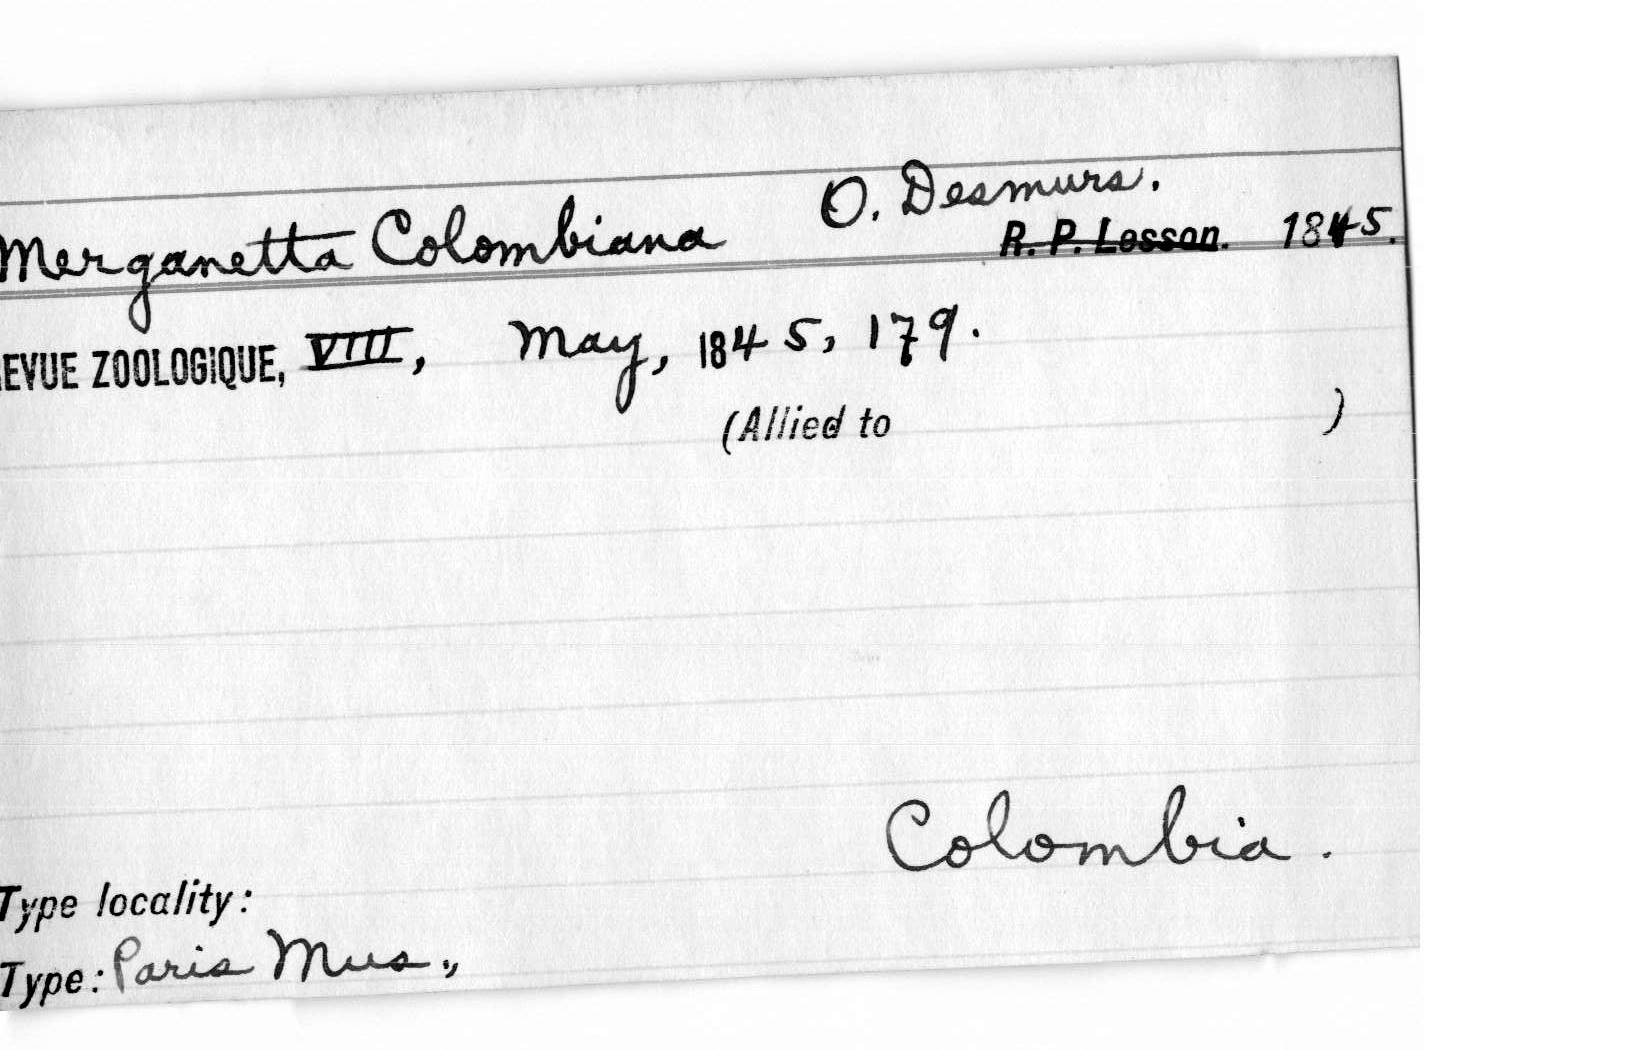 Merganetta Colombiana O. Desmurs.
R. P. Lesson. 1845.
EVUE ZOOLOGIQUE, VIII, May, 1845, 179.
(Allied to )
Colombia.
Type locality:
Type: Paris Mus.,